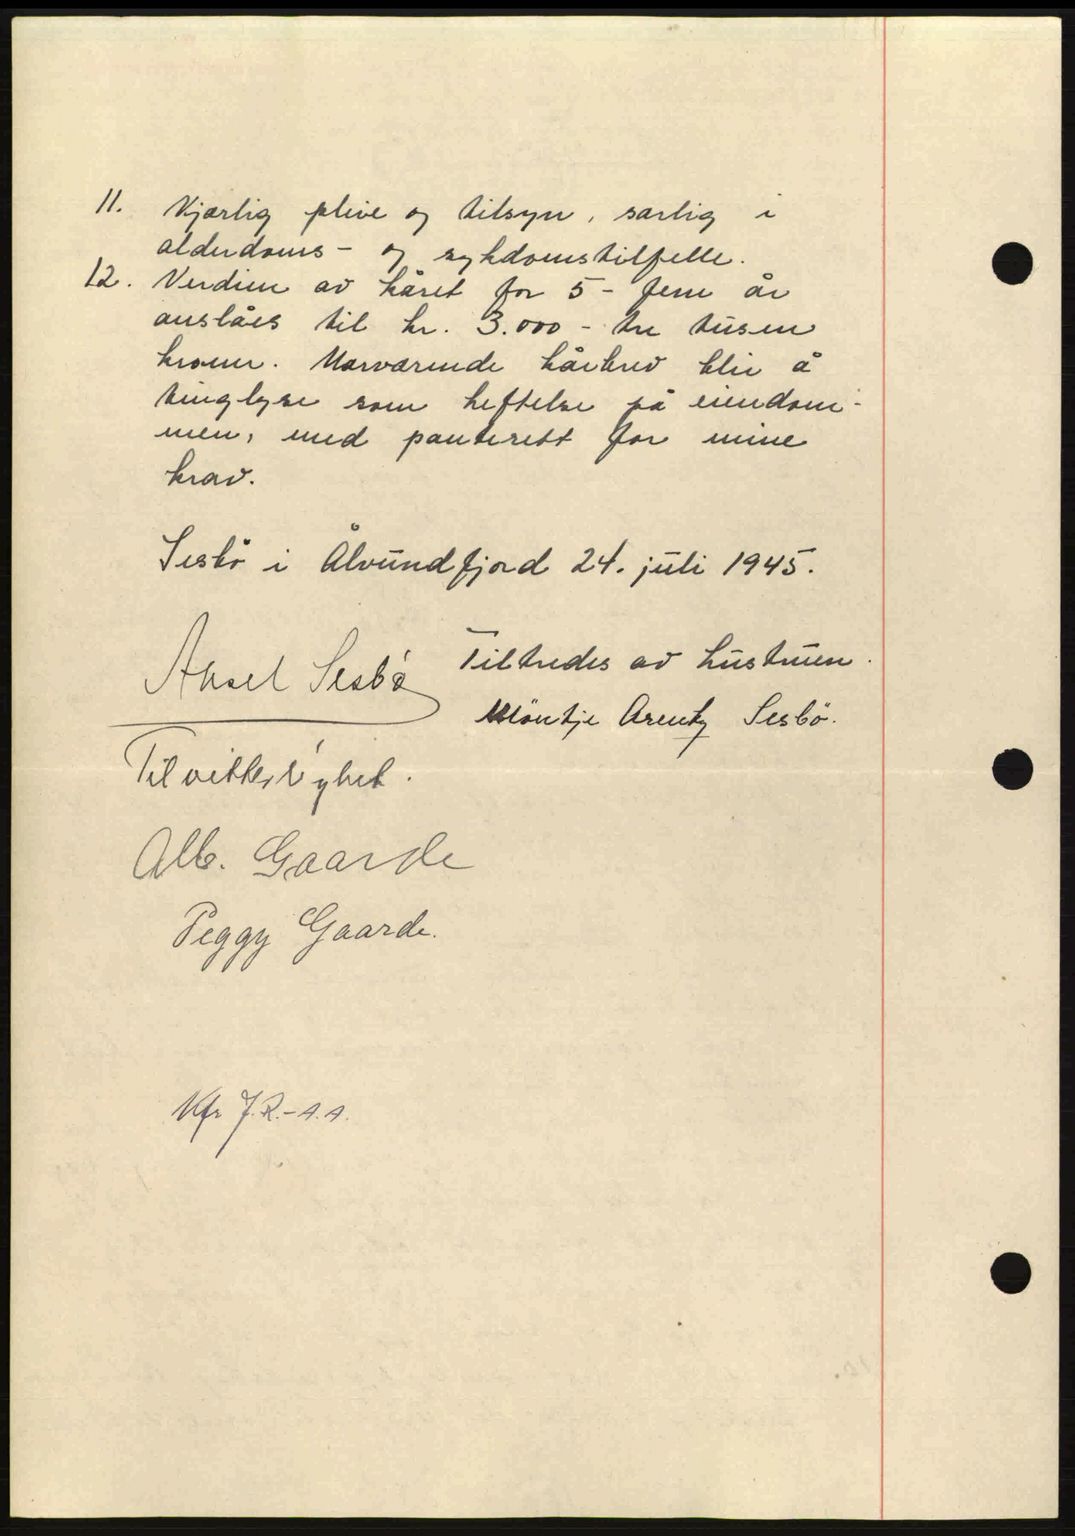 11. Kjærlig pleie og tilsyn, særlig i
alderdoms- og sykdomstilfelle.
12. Verdien av kåret for 5 - fem år
anslåes til kr. 3.000 - tre tusen
kroner. Nærværende kårbrev blir å
tinglyse som heftelse på eiendom-
men, med panterett for mine
krav.
Sesbø i Ålvundfjord 24. juli 1945.
Aksel Sesbø
Tiltredes av hustruen.
Møntje Arentz Sesbø.
Til vitterlighet.
Alb. Gaarde
Peggy Gaarde.
Kfr J.R. - A.A.